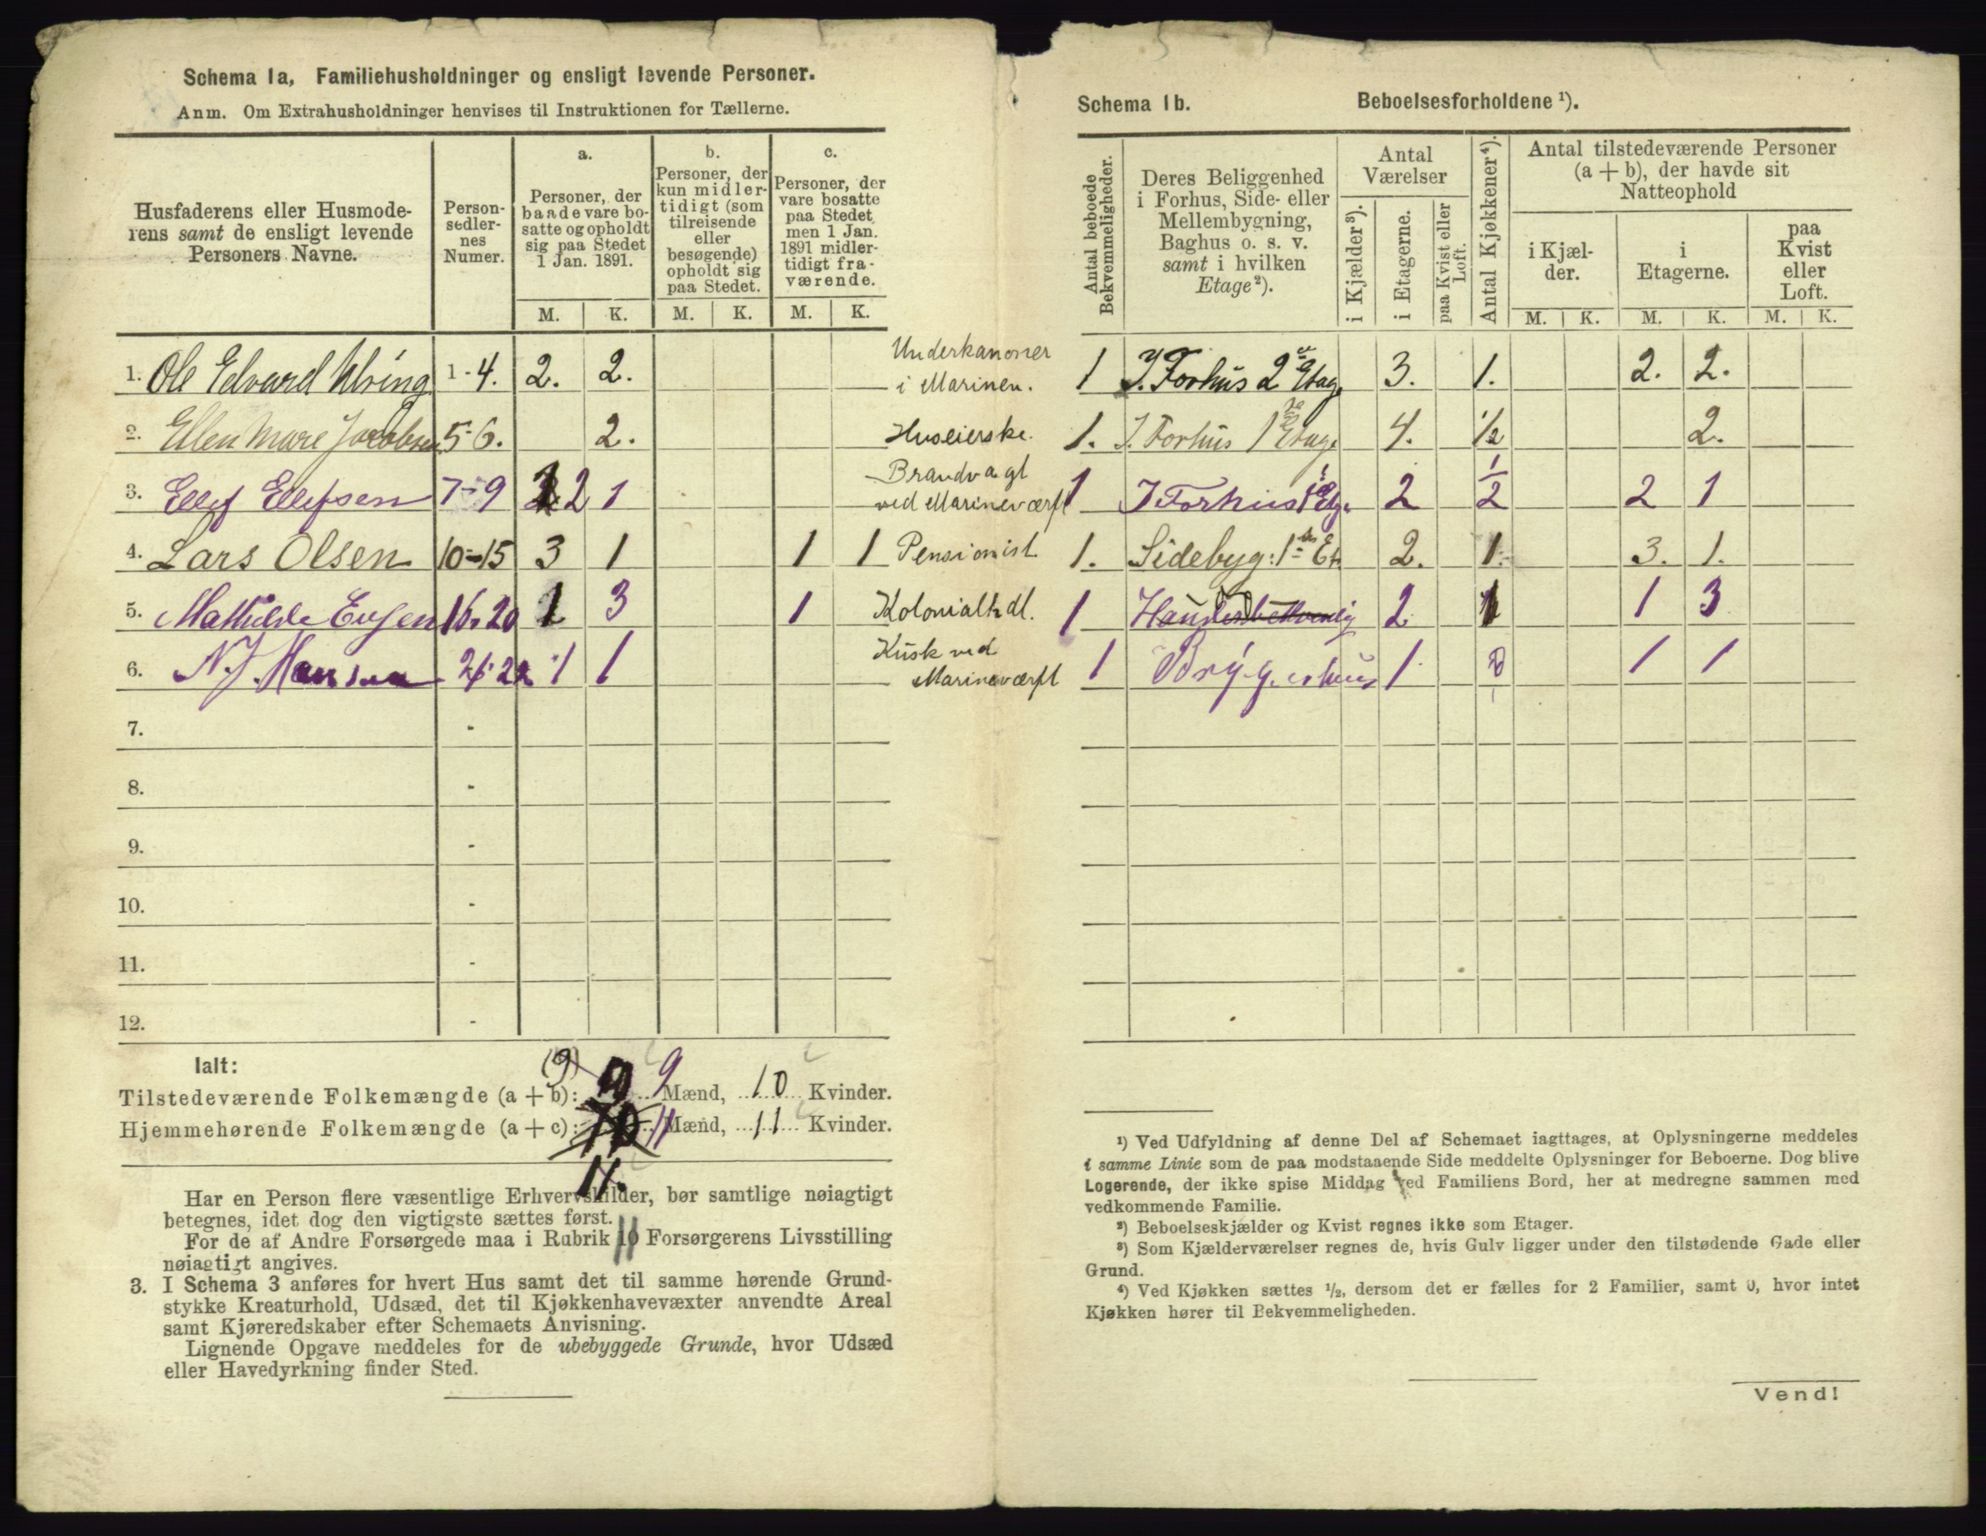 Schema 1a, Familiehusholdninger og ensligt levende Personer.
Anm. Om Extrahusholdninger henvises til Instruktionen for Tællerne.
Husfaderens eller Husmode-
rens samt de ensligt levende
Personers Navne.
Person-
sedler-
nes
Numer.
a.
Personer, der
baade vare bo-
satte og opholdt
sig paa Stedet
1 Jan. 1891.
b.
Personer, der
kun midler-
tidigt (som
tilreisende
eller
besøgende)
opholdt sig
paa Stedet.
c.
Personer, der
vare bosatte
paa Stedet
men 1 Jan.
1891 midler-
tidigt fra-
værende.
M. K. M. K. M. K.
1. Ole Edvard Ulving 1-4. 2. 2. Underkanoner
i Marinen.
2. Ellen Mare Jacobsen 5-6. 2. Huseierske.
3. Ellef Ellefsen 7-9 2 1 Brandvagt
ved Marineværft
4. Lars Olsen 10-15 3 1 1 1 Pensionist
5. Mathilde 16-20 1 3 1 Kolonialhdl.
6. N. J. Hansen 21-22 1 1 Kusk ved
Marineværft
7. -
8. -
9. -
10. -
11. -
12. -
Ialt:
Tilstedeværende Folkemængde (a + b): (9) 9 9 Mænd, 10 Kvinder.
Hjemmehørende Folkemængde (a + c): 10 11 Mænd, 11 Kvinder.
11.
Har en Person flere væsentlige Erhvervskilder, bør samtlige nøiagtigt
betegnes, idet dog den vigtigste sættes først.
For de af Andre Forsørgede maa i Rubrik 11 Forsørgerens Livsstilling
nøiagtigt angives.
3. I Schema 3 anføres for hvert Hus samt det til samme hørende Grund-
stykke Kreaturhold, Udsæd, det til Kjøkkenhavevæxter anvendte Areal
samt Kjøreredskaber efter Schemaets Anvisning.
Lignende Opgave meddeles for de ubebyggede Grunde, hvor Udsæd
eller Havedyrkning finder Sted.
Schema 1b. Beboelsesforholdene ¹).
Antal beboede
Bekvemmeligheder.
Deres Beliggenhed
i Forhus, Side- eller
Mellembygning,
Baghus o. s. v.
samt i hvilken
Etage ²).
Antal
Værelser
i Kjælder ³).
i Etagerne.
paa Kvist eller
Loft.
Antal Kjøkkener ⁴).
Antal tilstedeværende Personer
(a + b), der havde sit
Natteophold
i Kjæl-
der.
i
Etagerne.
paa
Kvist
eller
Loft.
M. K. M. K. M. K.
1 I. Forhus 2 Etag. 3. 1. 2. 2.
1. I. Forhus 1 Etage 4. 1/2 2.
1 I Forhus 1 Etg. 2 1/2 2 1
1. Sidebyg: 1 Et. 2. 1. 3. 1.
1 2 1 1 3
1 Bryggerhus 1 0 1 1
¹) Ved Udfyldning af denne Del af Schemaet iagttages, at Oplysningerne meddeles
i samme Linie som de paa modstaaende Side meddelte Oplysninger for Beboerne. Dog blive
Logerende, der ikke spise Middag ved Familiens Bord, her at medregne sammen med
vedkommende Familie.
²) Beboelseskjælder og Kvist regnes ikke som Etager.
³) Som Kjælderværelser regnes de, hvis Gulv ligger under den tilstødende Gade eller
Grund.
⁴) Ved Kjøkken sættes ½, dersom det er fælles for 2 Familier, samt 0, hvor intet
Kjøkken hører til Bekvemmeligheden.
Vend!